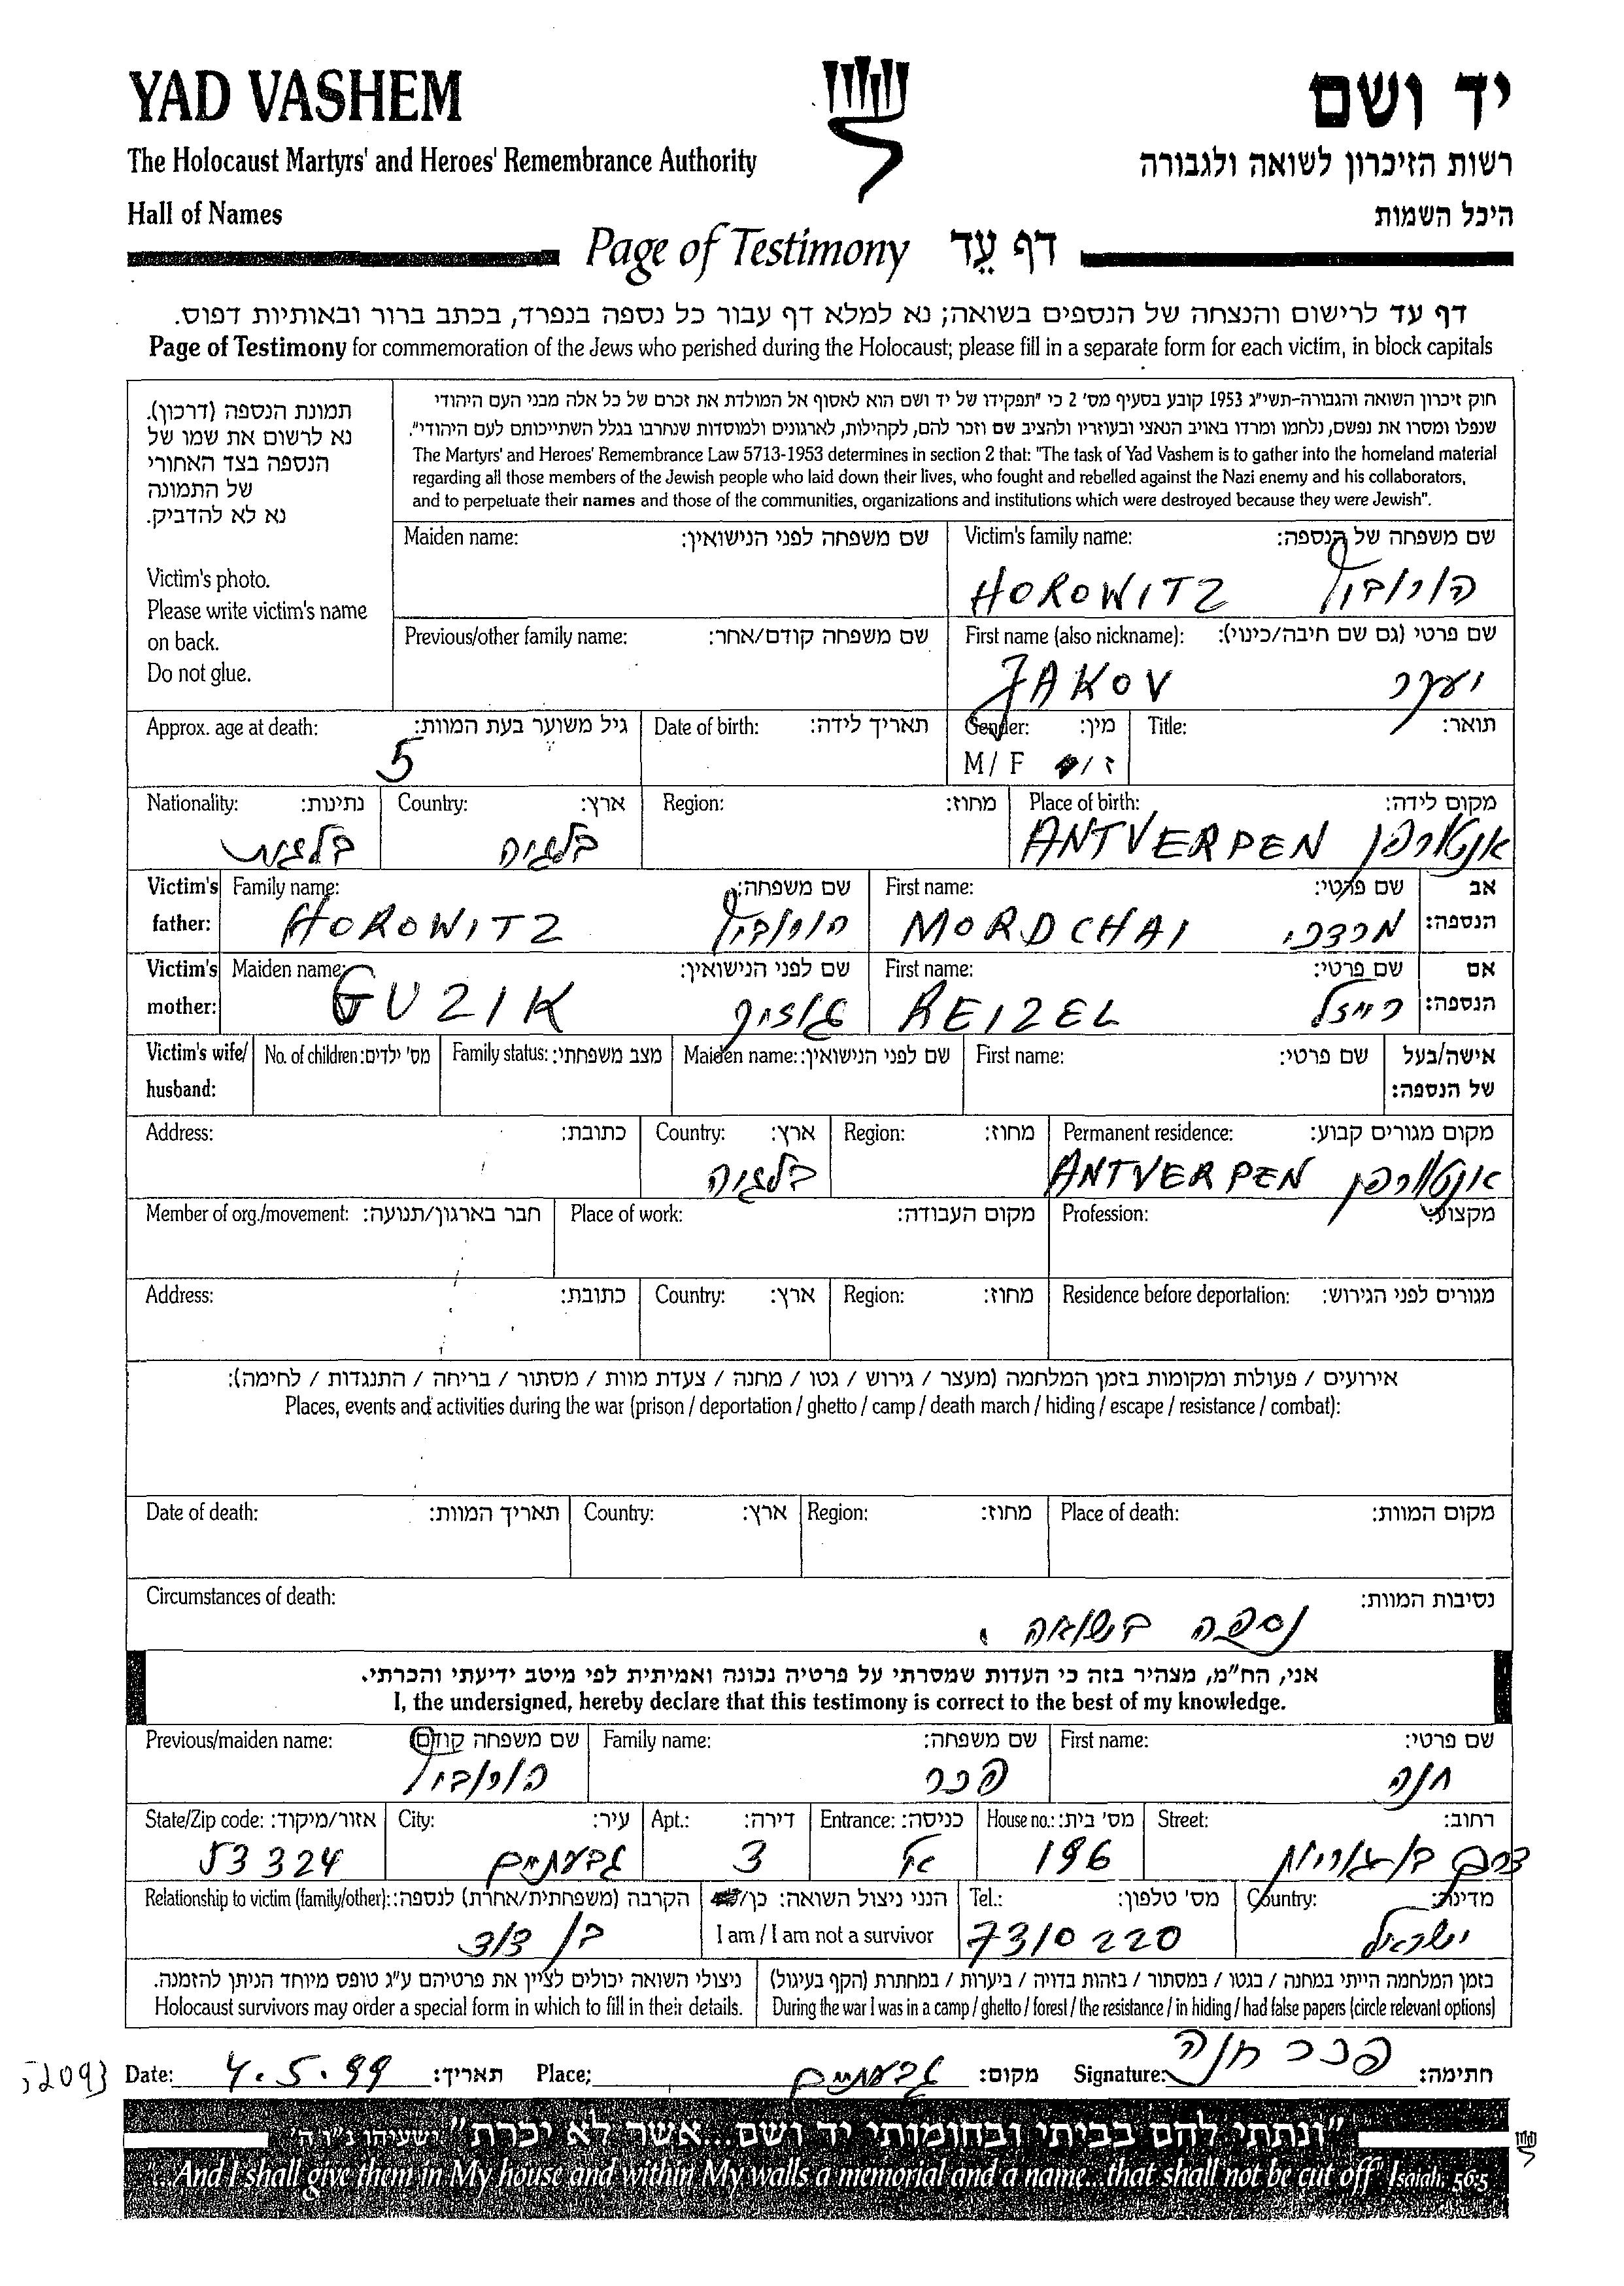 YAD VASHEM
יד ושם
The Holocaust Martyrs' and Heroes' Remembrance Authority
רשות הזיכרון לשואה ולגבורה
Hall of Names
היכל השמות
Page of Testimony דף עֵד
דף עד לרישום והנצחה של הנספים בשואה; נא למלא דף עבור כל נספה בנפרד, בכתב ברור ובאותיות דפוס.
Page of Testimony for commemoration of the Jews who perished during the Holocaust; please fill in a separate form for each victim, in block capitals
תמונת הנספה (דרכון).
נא לרשום את שמו של
הנספה בצד האחורי
של התמונה
נא לא להדביק.
Victim's photo.
Please write victim's name
on back.
Do not glue.
חוק זיכרון השואה והגבורה-תשי"ג 1953 קובע בסעיף מס' 2 כי "תפקידו של יד ושם הוא לאסוף אל המולדת את זכרם של כל אלה מבני העם היהודי
שנפלו ומסרו את נפשם, נלחמו ומרדו באויב הנאצי ובעוזריו ולהציב שם וזכר להם, לקהילות, לארגונים ולמוסדות שנחרבו בגלל השתייכותם לעם היהודי".
The Martyrs' and Heroes' Remembrance Law 5713-1953 determines in section 2 that: "The task of Yad Vashem is to gather into the homeland material
regarding all those members of the Jewish people who laid down their lives, who fought and rebelled against the Nazi enemy and his collaborators,
and to perpetuate their names and those of the communities, organizations and institutions which were destroyed because they were Jewish".
Maiden name: שם משפחה לפני הנישואין: Victim's family name: שם משפחה של הנספה:
HOROWITZ הורוביץ
Previous/other family name: שם משפחה קודם/אחר: First name (also nickname): שם פרטי (גם שם חיבה/כינוי):
JAKOV יעקב
Approx. age at death: גיל משוער בעת המוות: Date of birth: תאריך לידה: Gender: מין: Title: תואר:
5 M / F ז /
Nationality: נתינות: Country: ארץ: Region: מחוז: Place of birth: מקום לידה:
בלגית בלגיה ANTVERPEN אנטורפן
Victim's father: Family name: שם משפחה: First name: שם פרטי: אב הנספה:
HOROWITZ הורוביץ MORDCHAI מרדכי
Victim's mother: Maiden name: שם לפני הנישואין: First name: שם פרטי: אם הנספה:
GUZIK גוזיק REIZEL רייזל
Victim's wife/ husband: No. of children: מס' ילדים: Family status: מצב משפחתי: Maiden name: שם לפני הנישואין: First name: שם פרטי: אישה/בעל של הנספה:
Address: כתובת: Country: ארץ: Region: מחוז: Permanent residence: מקום מגורים קבוע:
בלגיה ANTVERPEN אנטוורפן
Member of org./movement: חבר בארגון/תנועה: Place of work: מקום העבודה: Profession: מקצוע:
Address: כתובת: Country: ארץ: Region: מחוז: Residence before deportation: מגורים לפני הגירוש:
אירועים / פעולות ומקומות בזמן המלחמה (מעצר / גירוש / גטו / מחנה / צעדת מוות / מסתור / בריחה / התנגדות / לחימה):
Places, events and activities during the war (prison / deportation / ghetto / camp / death march / hiding / escape / resistance / combat):
Date of death: תאריך המוות: Country: ארץ: Region: מחוז: Place of death: מקום המוות:
Circumstances of death: נסיבות המוות:
נספה בשואה.
אני, הח"מ, מצהיר בזה כי העדות שמסרתי על פרטיה נכונה ואמיתית לפי מיטב ידיעתי והכרתי.
I, the undersigned, hereby declare that this testimony is correct to the best of my knowledge.
Previous/maiden name: שם משפחה קודם Family name: שם משפחה: First name: שם פרטי:
הורוביץ פכר חנה
State/Zip code: אזור/מיקוד: City: עיר: Apt.: דירה: Entrance: כניסה: House no.: מס' בית: Street: רחוב:
53324 גבעתיים 3 196 דרך בן גוריון
Relationship to victim (family/other): הקרבה (משפחתית/אחרת) לנספה: הנני ניצול השואה: כן/ Tel.: מס' טלפון: Country: מדינה:
בן דוד I am / I am not a survivor 7310220 ישראל
ניצולי השואה יכולים לציין את פרטיהם ע"ג טופס מיוחד הניתן להזמנה. בזמן המלחמה הייתי במחנה / בגטו / במסתור / בזהות בדויה / ביערות / במחתרת (הקף בעיגול)
Holocaust survivors may order a special form in which to fill in their details. During the war I was in a camp / ghetto / forest / the resistance / in hiding / had false papers (circle relevant options)
52093 Date: 4.5.99 תאריך: Place: גבעתיים מקום: Signature: פכר חנה חתימה:
"ונתתי להם בביתי ובחומותי יד ושם...אשר לא יכרת" ישעיהו נ"ו ה'
And I shall give them in My house and within My walls a memorial and a name...that shall not be cut off Isaiah 56:5